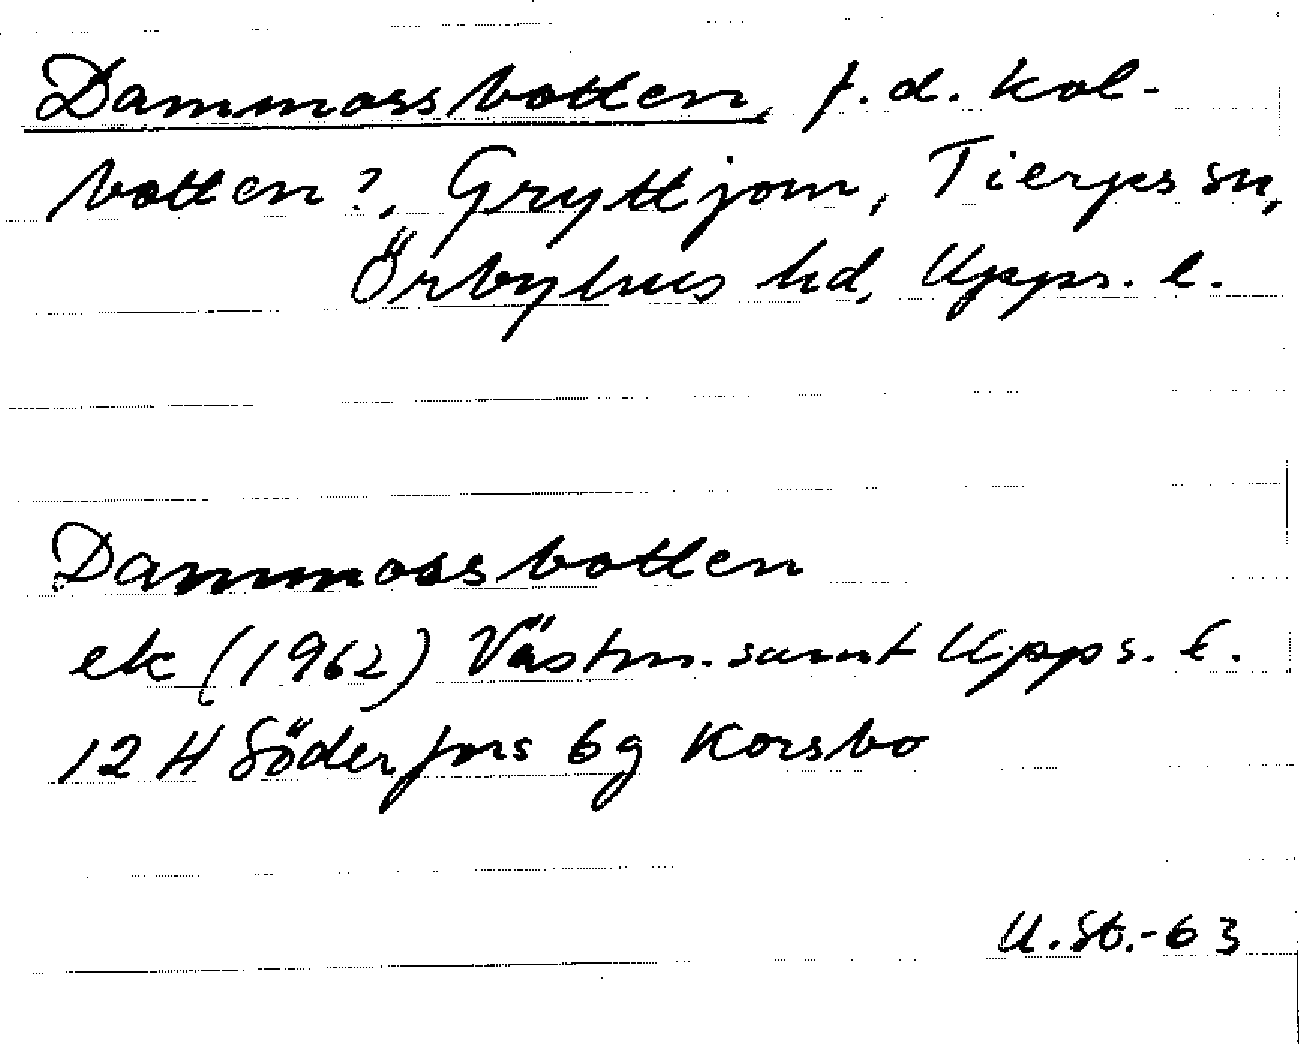 Dammossbotten, f.d. kol-
botten?, Gryttjom, Tierps sn,
Örbyhus hd, Upps. l.
Dammossbotten
ek (1962) Västm. samt Upps. l.
12 H Söderfors 6g Korsbo
U.St.-63